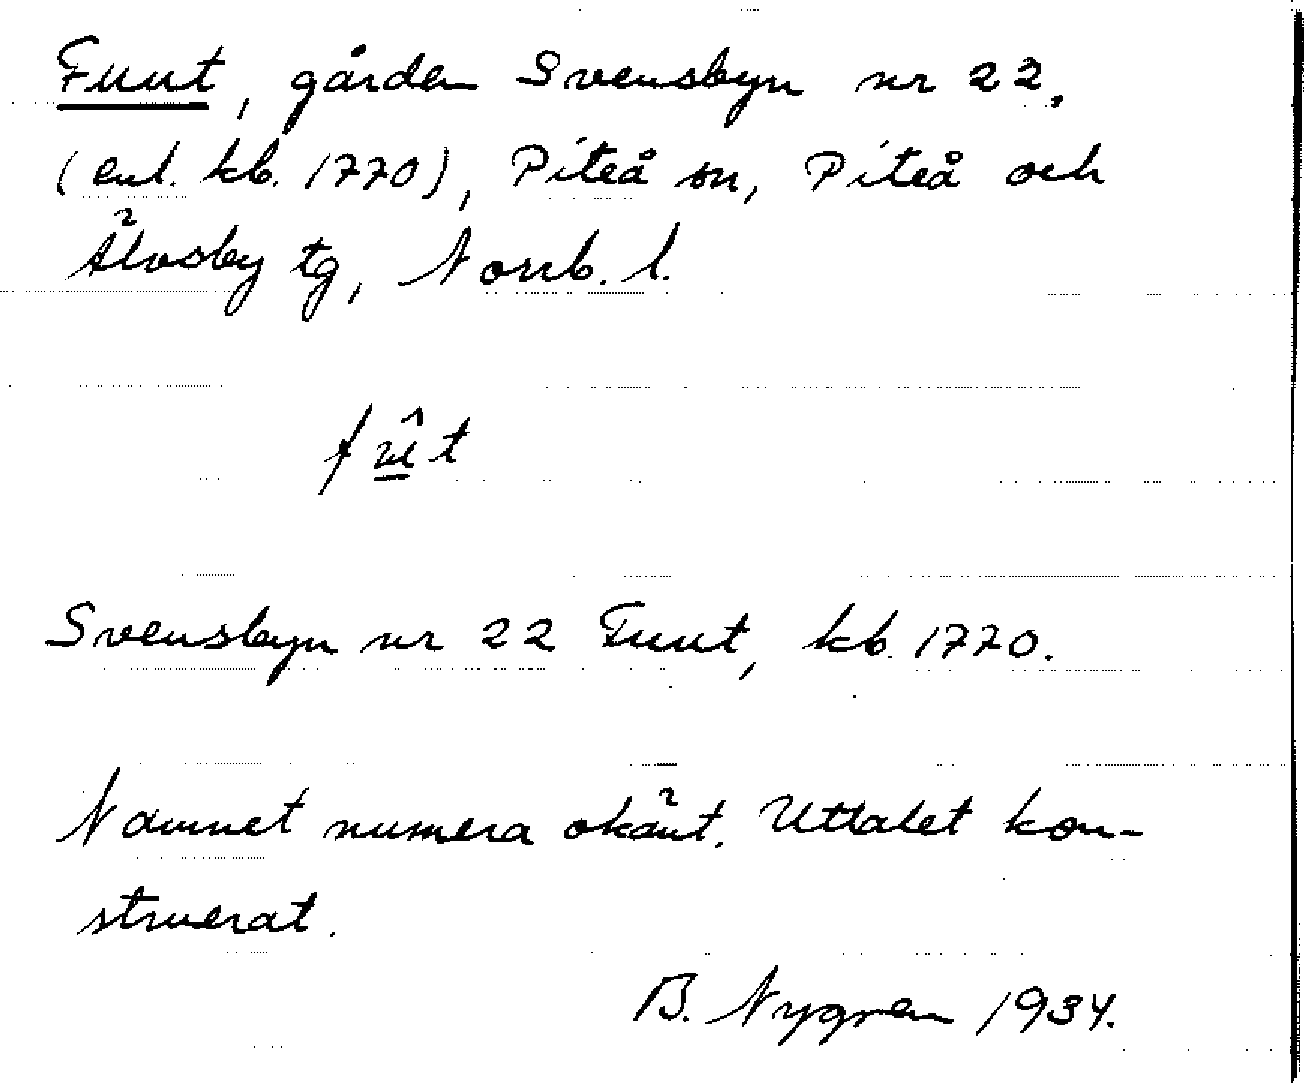 Fuut, gården Svensbyn nr 22.
(enl. kb. 1770), Piteå sn, Piteå och
Älvsby tg, Norrb. l.
fû̲t
Svensbyn nr 22 Fuut, kb 1770.
Namnet numera okänt. Uttalet kon-
struerat.
B. Nygren 1934.